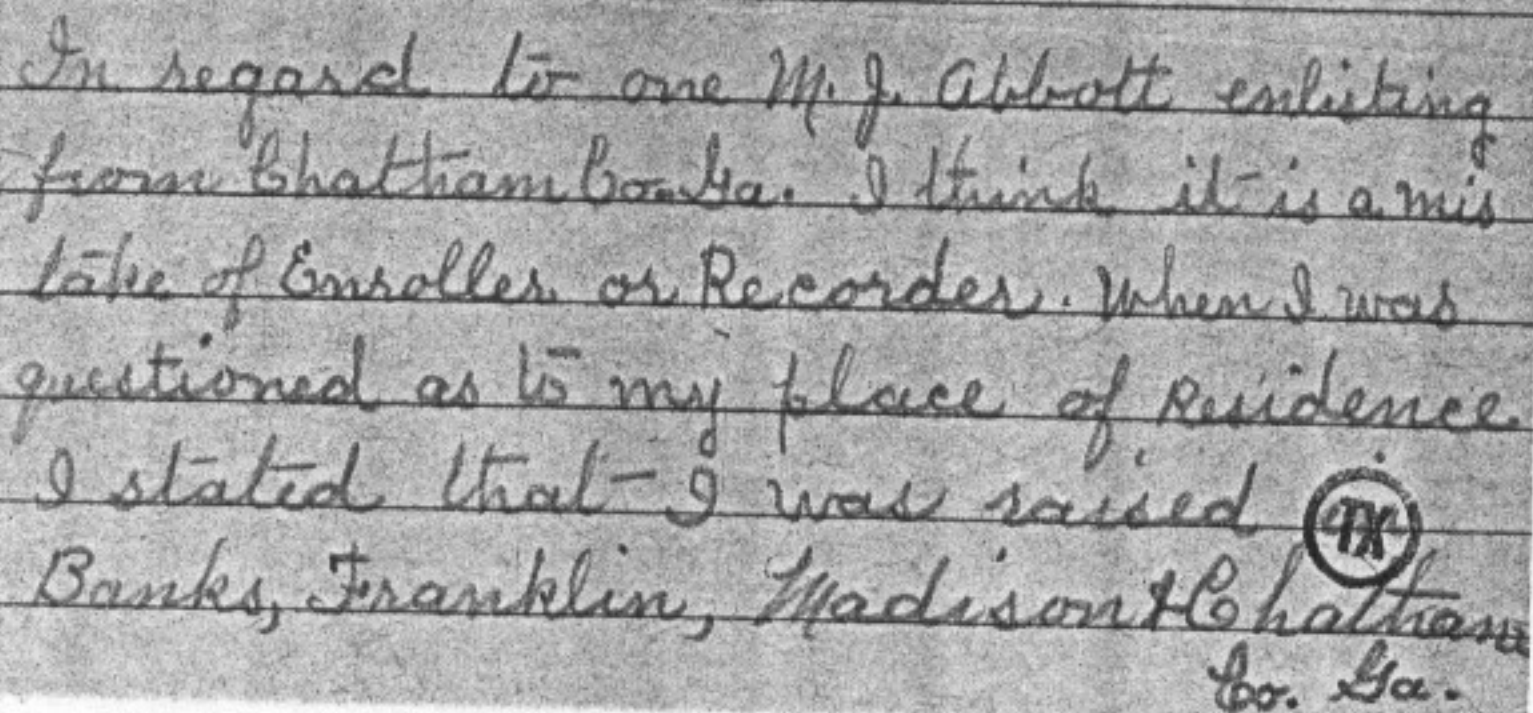 In regard to one M. J. Abbott enlisting
from Chattham Co. Ga. I think it is a mis
take of Enroller or Recorder. When I was
questioned as to my place of Residence
I stated that I was raised
TX
Banks, Franklin, Madison & Chattham
Co. Ga.